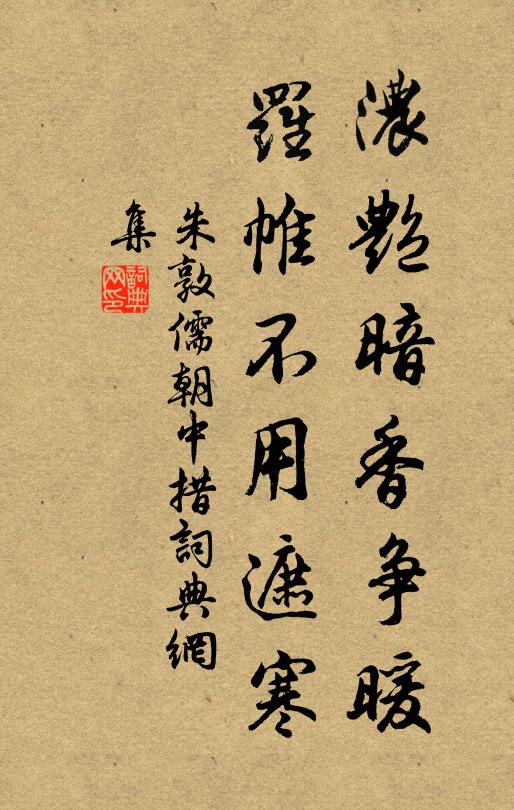 濃艷暗香爭暖
羅帷不用遮寒
朱敦儒朝中措詞典網
集
詞典网印